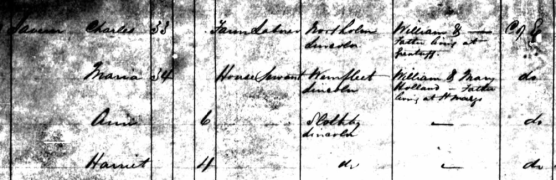 Charles 33 Farm Labr Lincoln William &
Father living at
C of E
Maria 34 House Servant Wainfleet Lincoln William & Mary Holland - Father living at St Marys do
Ann 6 Lincoln — do
Harriet 4 do — do